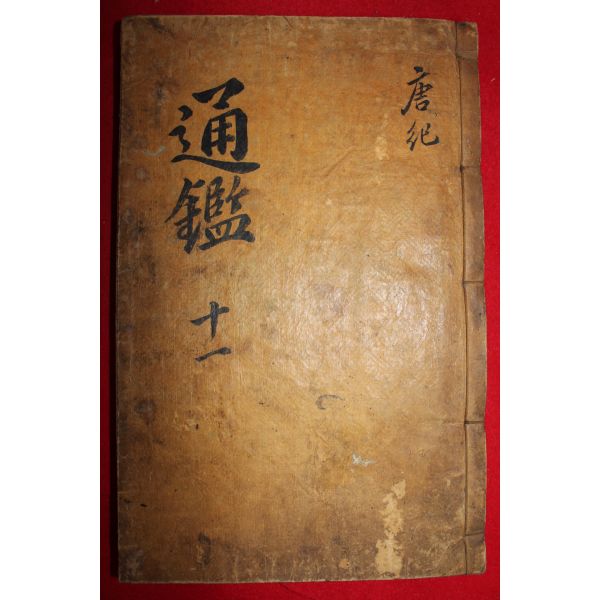 唐紀
通鑑
十一